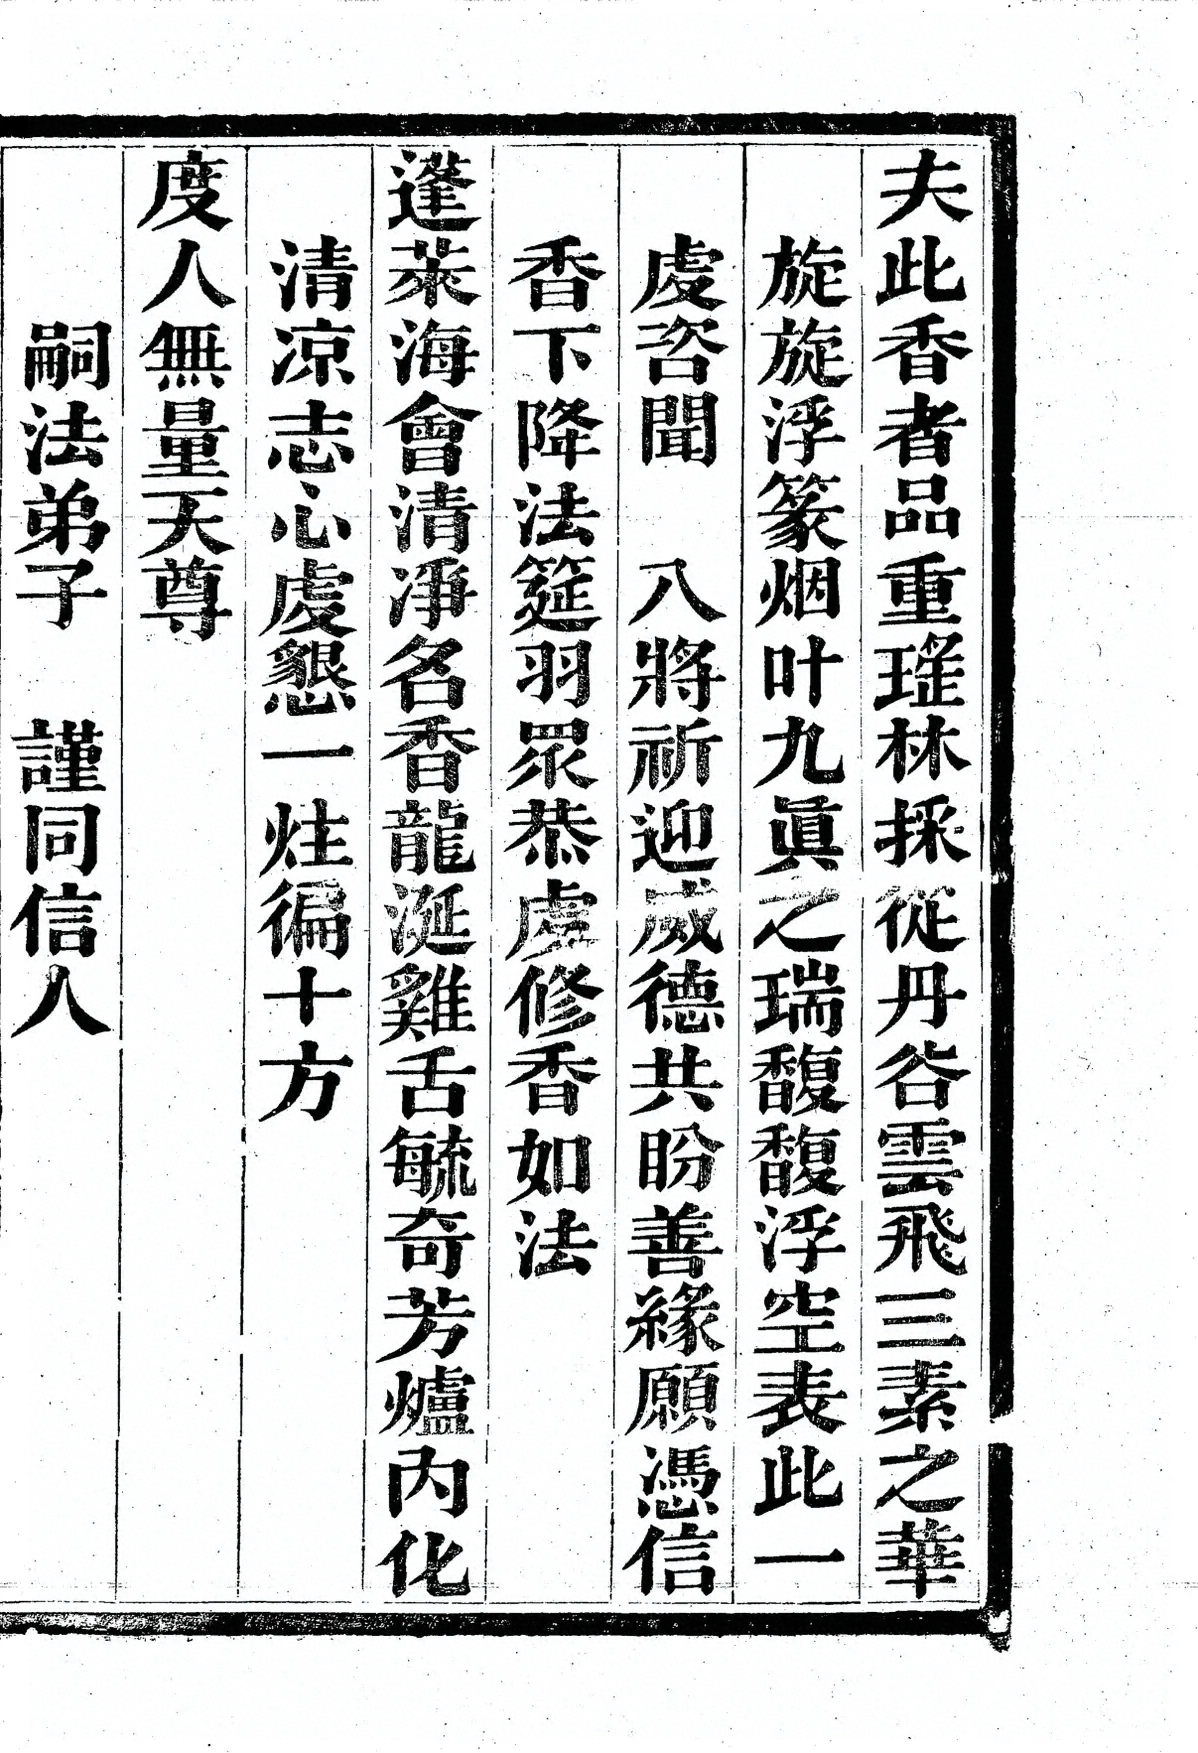 夫此香者品重瑤林採從丹谷雲飛三素之華
旋旋浮篆烟叶九眞之瑞馥馥浮空表此一
虔咨聞　八將祈迎威德共盼善緣願憑信
香下降法筵羽眾恭虔修香如法
蓬萊海會清淨名香龍涎雞舌毓奇芳爐內化
清凉志心虔懇一炷徧十方
度人無量天尊
嗣法弟子　謹同信人